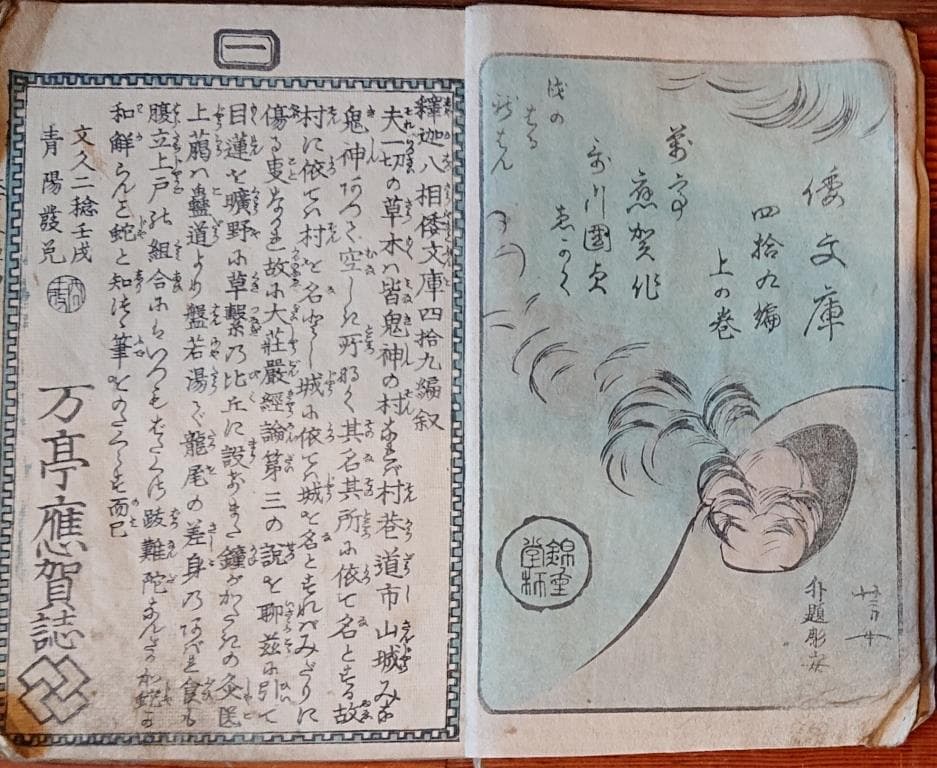 倭文庫
四拾九編
上の巻
萬亭
應賀作
哥川國貞
ゑかく
錦重堂梓
外題彫安
一
釋迦八相倭文庫四拾九編叙
夫一切の草木ハ皆鬼神の村あれバ村巷道市山城みな
鬼神ありて空しき所なく其名其所に依て名とする故
村に依てハ村を名とし城に依てハ城を名とすれバみだりに
傷る叓なかれ故に大莊嚴經論第三の説を聊茲に引て
目蓮を曠野に草繋の比丘に設あまた鐘がかたきの
上ハ蠱道より盤若湯で龍尾の差身のあバれ食も
腹立上戸の組合にていつも跋難陀あんだか蛇か
和鮮らんと蛇と知つゝ筆をのたくらす而已
文久二稔壬戌
青陽發兌
万亭應賀誌